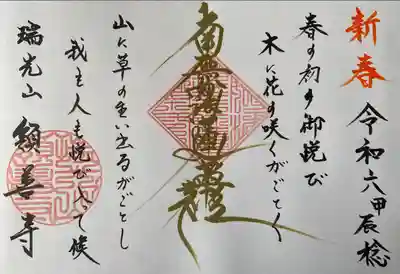 新春
令和六甲辰稔
春の初の御悦び
木に花の咲くがごとく
南無妙法蓮華経
山に草の生い出るがごとし
我も人も悦び入って候
瑞光山